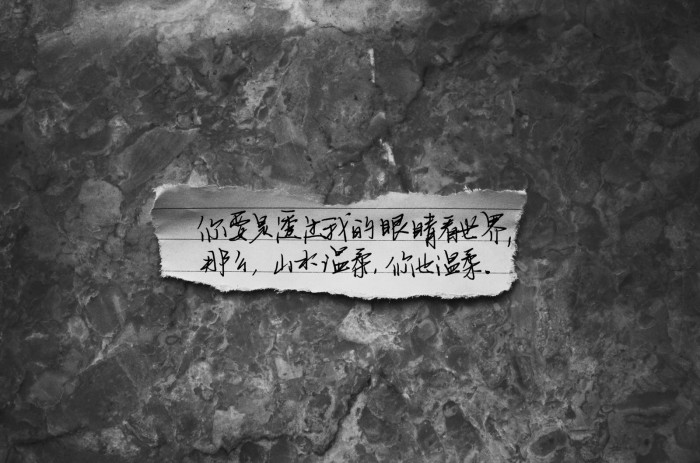 你要是透过我的眼睛看世界,
那么,山水温柔,你也温柔.